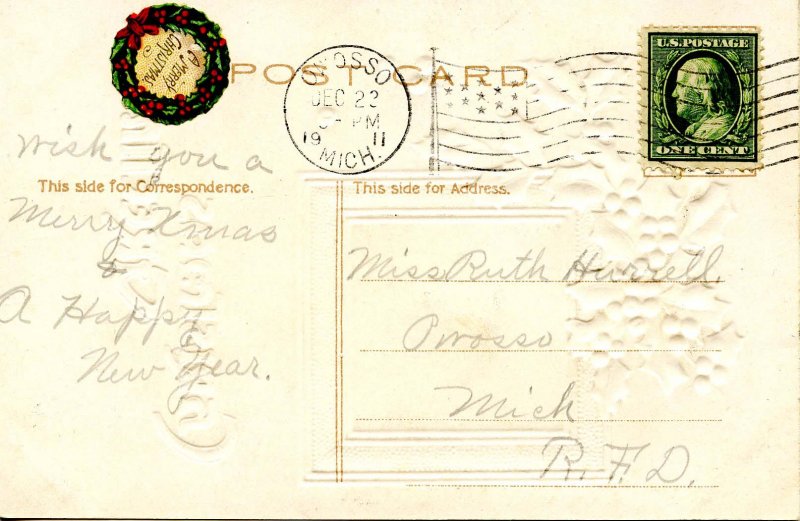 A
MERRY
CHRISTMAS
TO
POST CARD
OWOSSO
DEC 22
PM
19 11
MICH.
U.S. POSTAGE
ONE CENT
This side for Correspondence.
Wish you a
Merry Xmas
&
A Happy
New Year.
This side for Address.
Miss Ruth Hurrell.
Owosso
Mich
R.F.D.